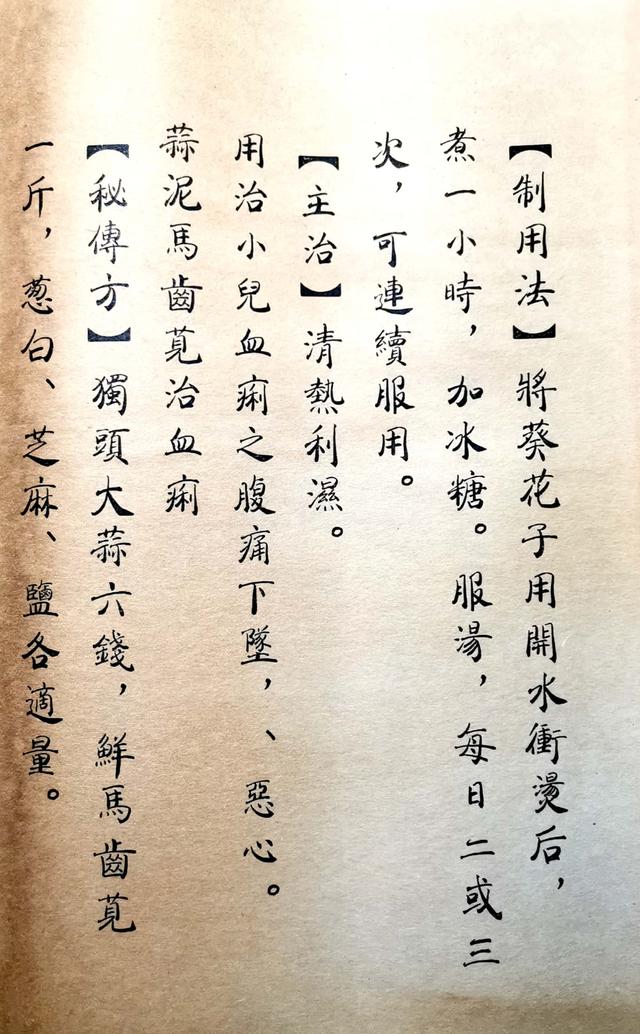 【制用法】將葵花子用開水衝燙后，
煮一小時，加冰糖。服湯，每日二或三
次，可連續服用。
【主治】清熱利濕。
用治小兒血痢之腹痛下墜，、惡心。
蒜泥馬齒莧治血痢
【秘傳方】獨頭大蒜六錢，鮮馬齒莧
一斤，葱白、芝麻、鹽各適量。